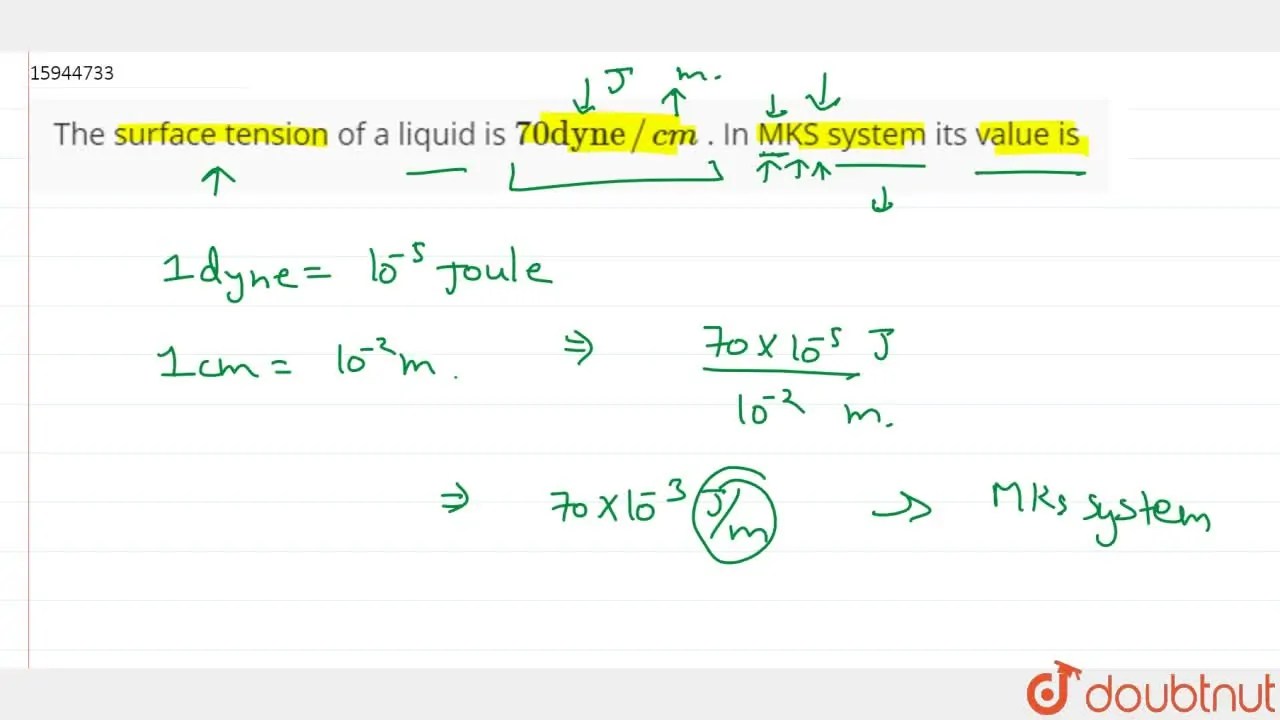 15944733
J m.
The surface tension of a liquid is 70dyne/cm . In MKS system its value is
1 dyne = 10⁻⁵ Joule
1 cm = 10⁻² m. ⇒ 70 × 10⁻⁵ J
10⁻² m.
⇒ 70 × 10⁻³ J/m MKs system
doubtnut